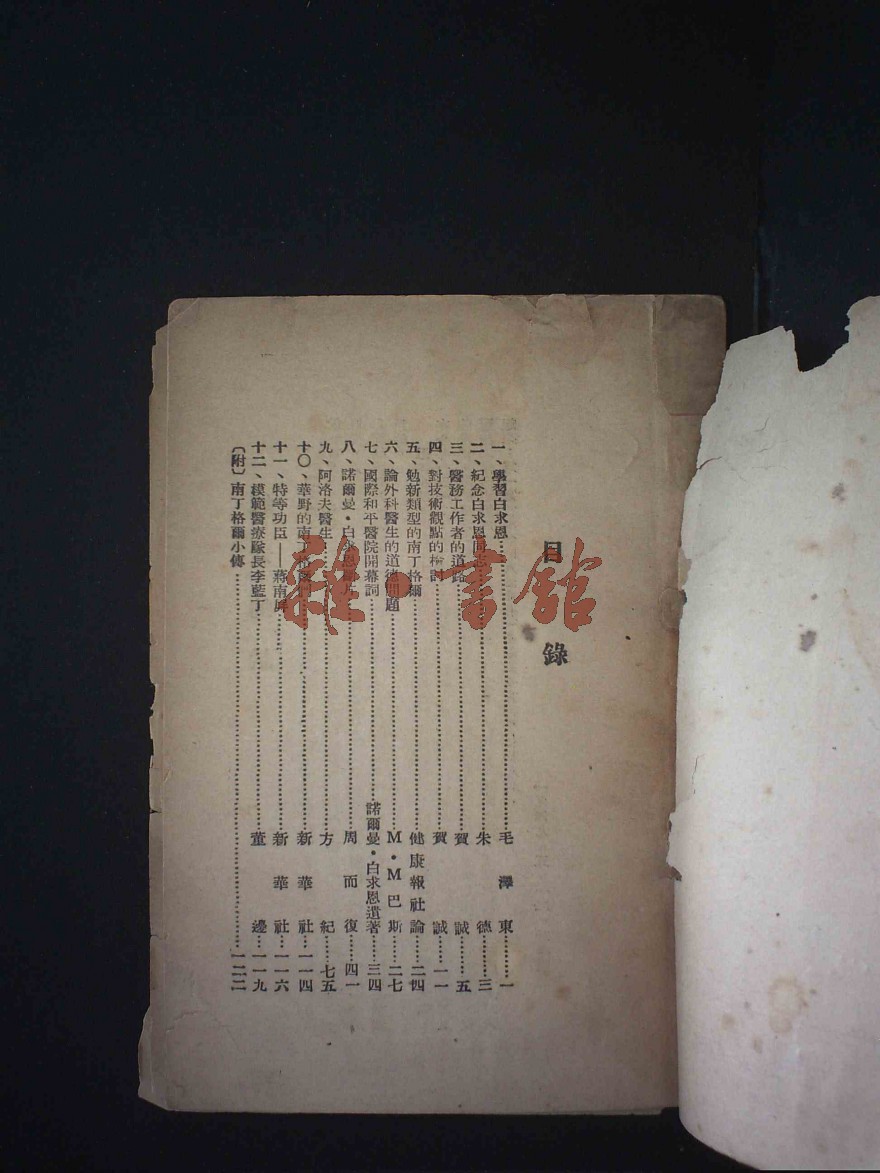 目錄
一、學習白求恩……毛澤東……一
二、紀念白求恩同志……朱德……三
三、醫務工作者的道路……賀誠……五
四、對技術觀點的檢討……賀誠……一一
五、勉新類型的南丁格爾……健康報社論……二四
六、論外科醫生的道德問題……M·M巴斯……二七
七、國際和平醫院開幕詞……諾爾曼·白求恩遺著……三四
八、諾爾曼·白求恩片……周而復……四一
九、阿洛夫醫生……方紀……七五
十〇、華野的南丁……新華社……一一四
十一、特等功臣——蔣南屏……新華社……一一六
十二、模範醫療隊長李藍丁……董邊……一一九
〔附〕南丁格爾小傳……一二二
雜·書館